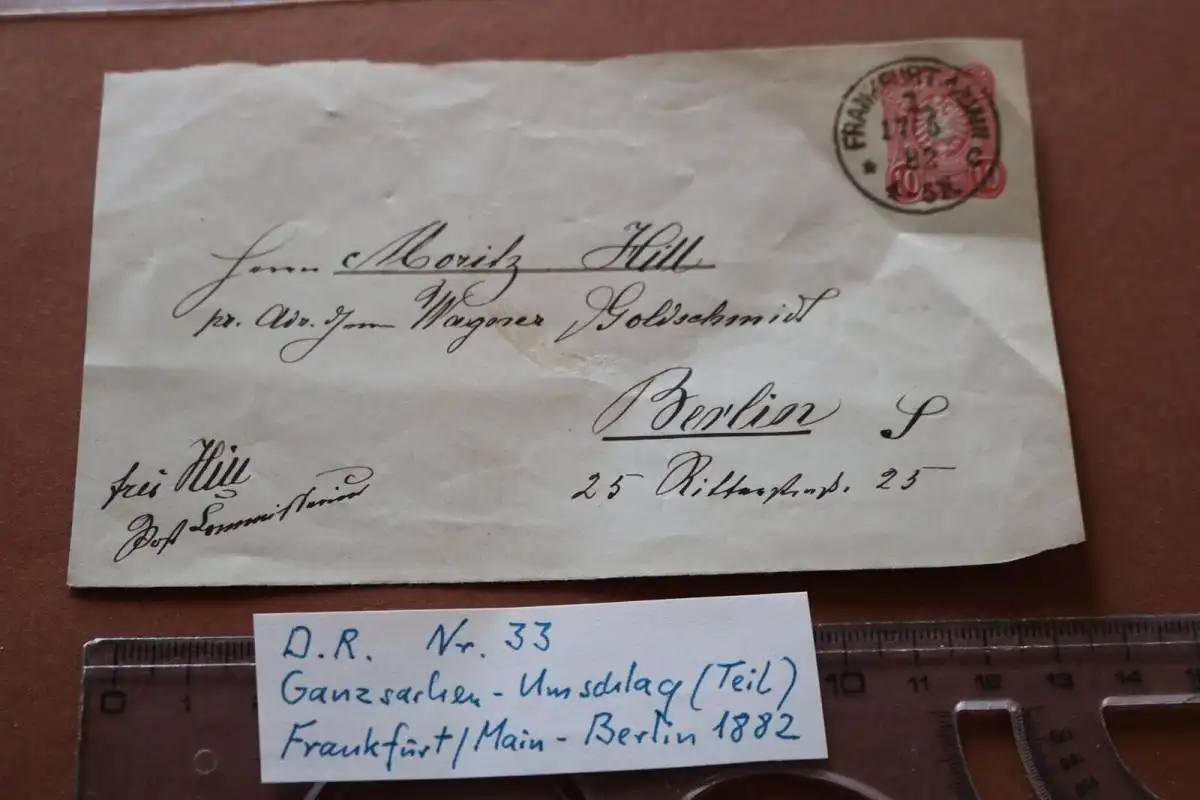 FRANKFURT A. MAIN
17 8
82
4-5N.
10 10
Herrn Moritz Hill
pr. Adr. Herrn Wagner Goldschmidt
Berlin S
25 Ritterstraß. 25
frei Hill
Post Commissarius
D.R. Nr. 33
Ganzsachen-Umschlag (Teil)
Frankfurt/Main - Berlin 1882
0 1 10 11 12 13 14